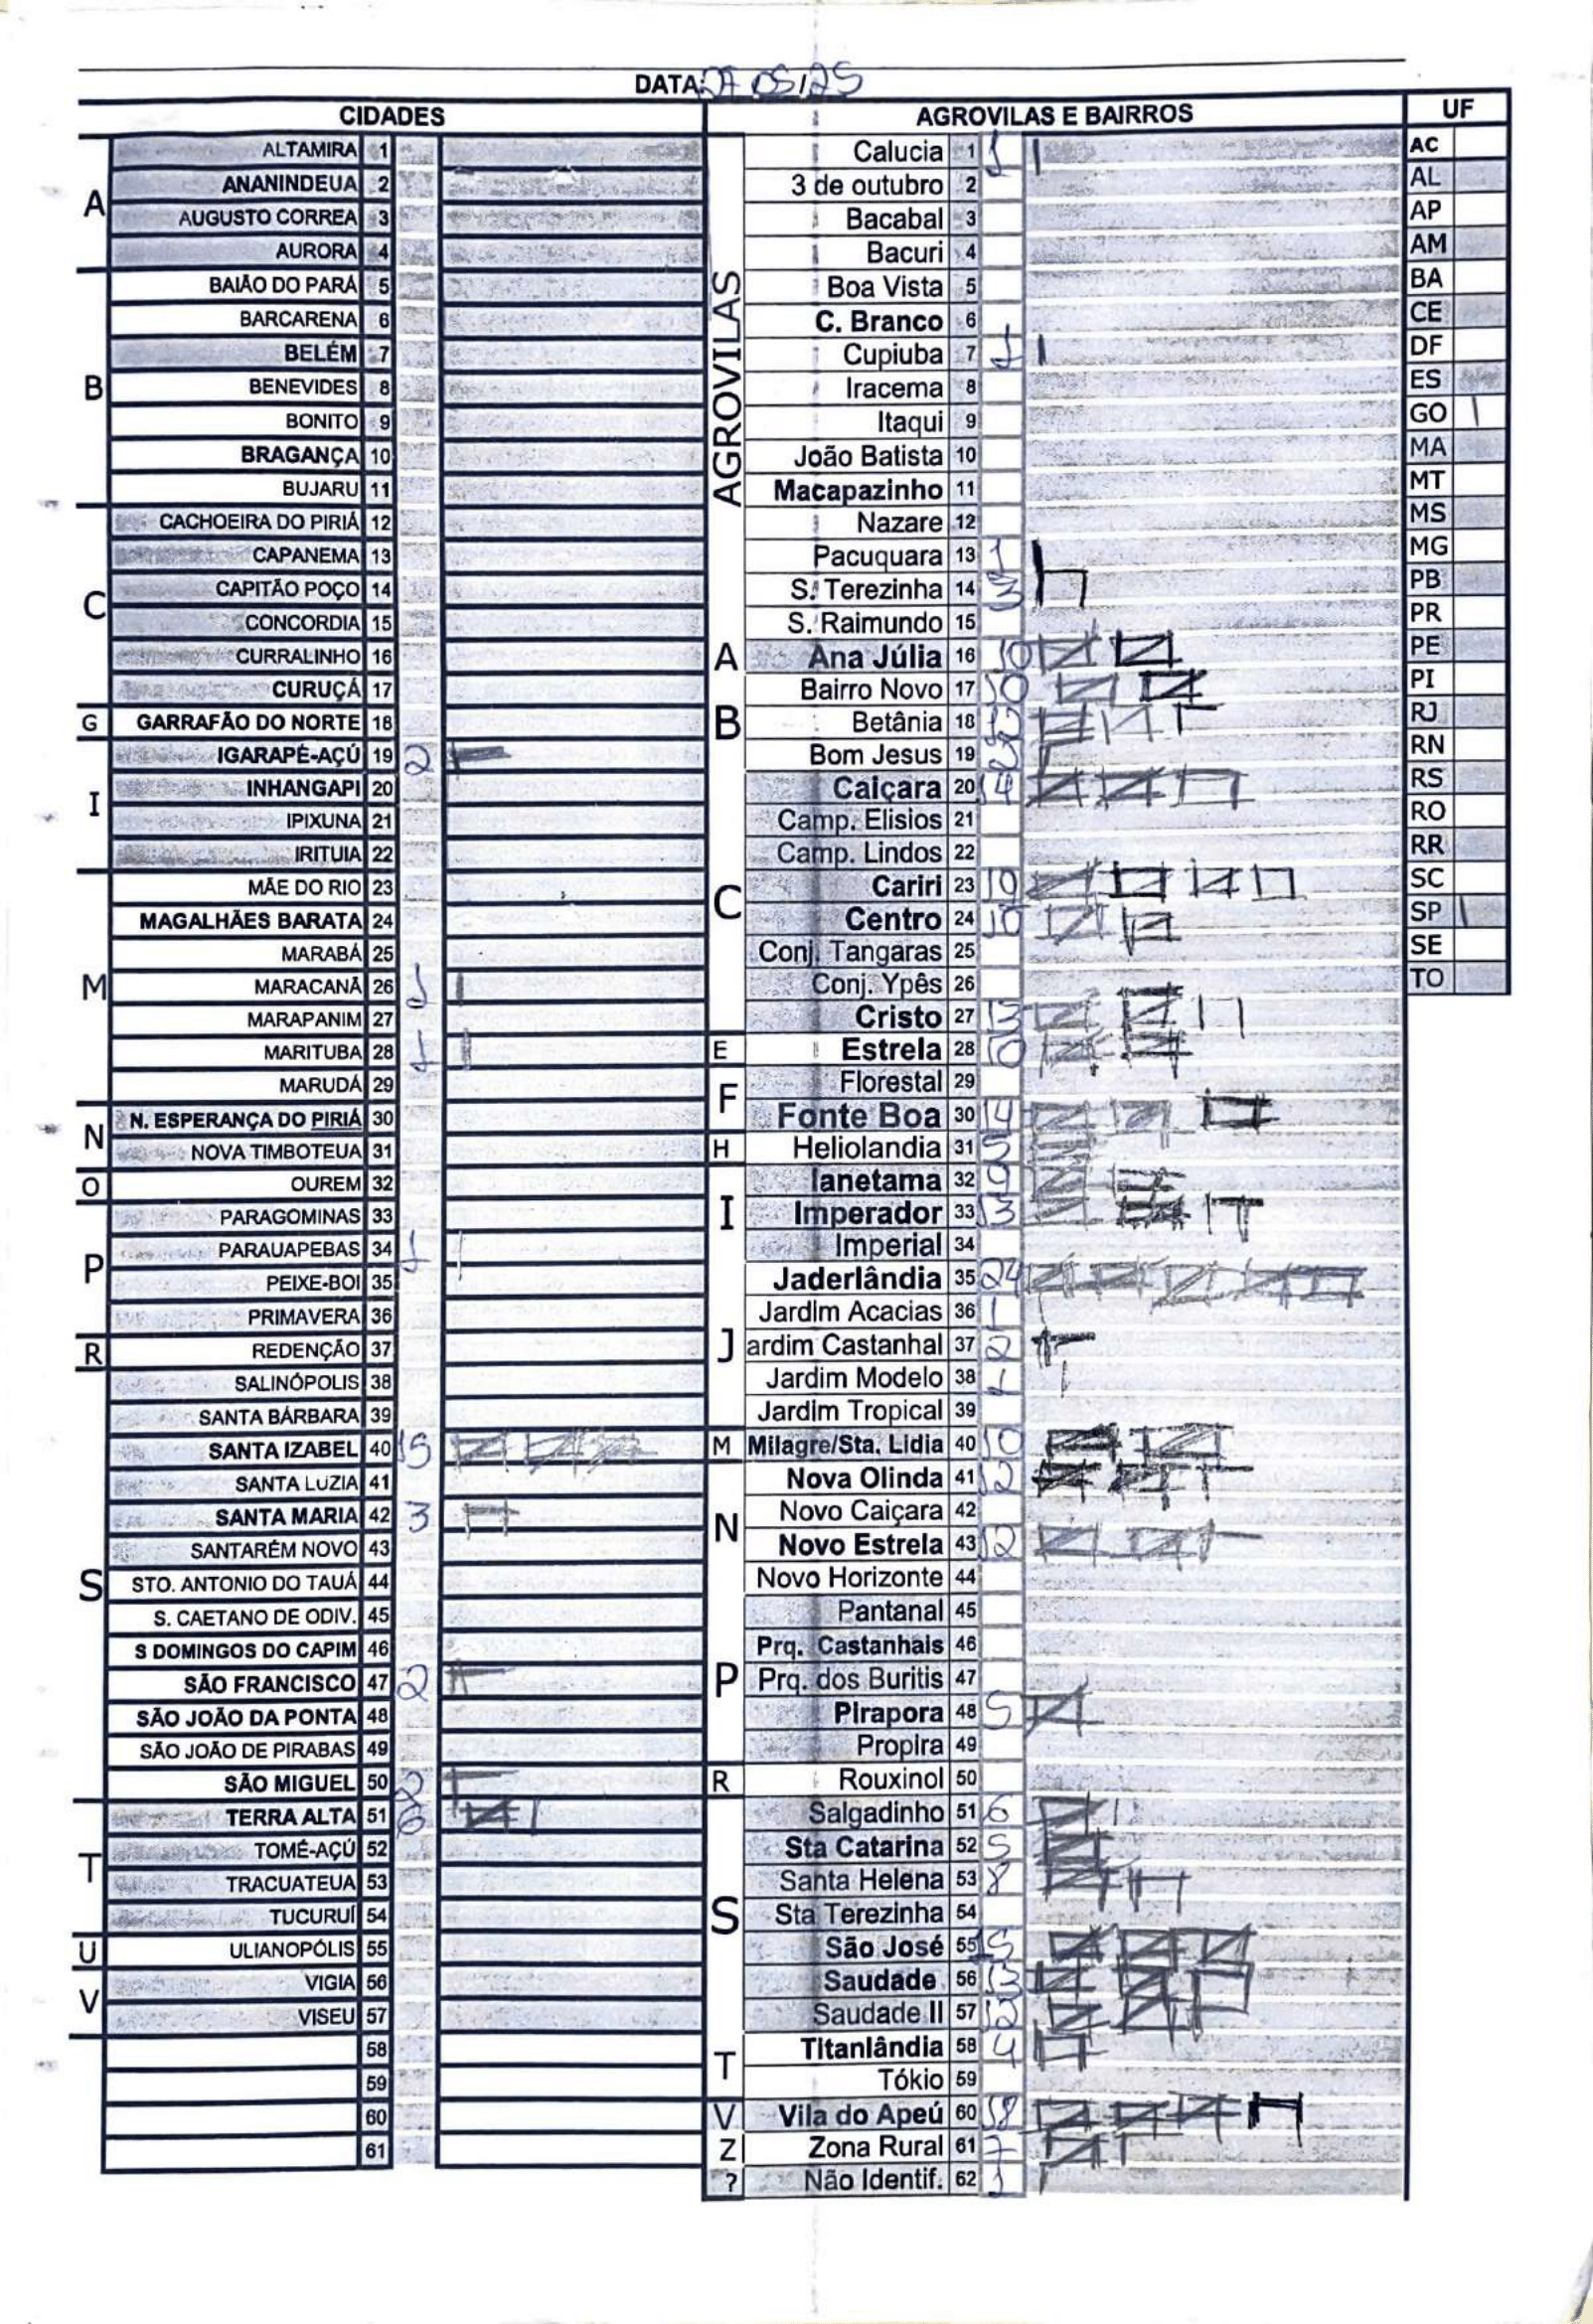 DATA: 27 05/25
CIDADES
A
ALTAMIRA 1
ANANINDEUA 2
AUGUSTO CORREA 3
AURORA 4
B
BAIÃO DO PARÁ 5
BARCARENA 6
BELÉM 7
BENEVIDES 8
BONITO 9
BRAGANÇA 10
BUJARU 11
C
CACHOEIRA DO PIRIÁ 12
CAPANEMA 13
CAPITÃO POÇO 14
CONCORDIA 15
CURRALINHO 16
CURUÇÁ 17
G
GARRAFÃO DO NORTE 18
I
IGARAPÉ-AÇÚ 19 2
INHANGAPI 20
IPIXUNA 21
IRITUIA 22
M
MÃE DO RIO 23
MAGALHÃES BARATA 24
MARABÁ 25
MARACANÃ 26 1
MARAPANIM 27
MARITUBA 28 1
MARUDÁ 29
N
N. ESPERANÇA DO PIRIÁ 30
NOVA TIMBOTEUA 31
O
OUREM 32
P
PARAGOMINAS 33
PARAUAPEBAS 34 1
PEIXE-BOI 35
PRIMAVERA 36
R
REDENÇÃO 37
S
SALINÓPOLIS 38
SANTA BÁRBARA 39
SANTA IZABEL 40 15
SANTA LUZIA 41
SANTA MARIA 42 3
SANTARÉM NOVO 43
STO. ANTONIO DO TAUÁ 44
S. CAETANO DE ODIV. 45
S DOMINGOS DO CAPIM 46
SÃO FRANCISCO 47 2
SÃO JOÃO DA PONTA 48
SÃO JOÃO DE PIRABAS 49
SÃO MIGUEL 50 2
T
TERRA ALTA 51 6
TOMÉ-AÇÚ 52
TRACUATEUA 53
TUCURUÍ 54
U
ULIANOPÓLIS 55
V
VIGIA 56
VISEU 57
58
59
60
61
AGROVILAS E BAIRROS
AGROVILAS
Calucia 1 1
3 de outubro 2
Bacabal 3
Bacuri 4
Boa Vista 5
C. Branco 6
Cupiuba 7 1
Iracema 8
Itaqui 9
João Batista 10
Macapazinho 11
Nazare 12
Pacuquara 13 1
S. Terezinha 14 3
S. Raimundo 15
A
Ana Júlia 16 10
B
Bairro Novo 17 10
Betânia 18
Bom Jesus 19 2
C
Caiçara 20 14
Camp. Elisios 21
Camp. Lindos 22
Cariri 23
Centro 24 10
Conj. Tangaras 25
Conj. Ypês 26
Cristo 27 13
E
Estrela 28 10
F
Florestal 29
Fonte Boa 30 14
H
Heliolandia 31 5
I
Ianetama 32 9
Imperador 33 13
Imperial 34
J
Jaderlândia 35 24
Jardim Acacias 36 1
ardim Castanhal 37 2
Jardim Modelo 38 1
Jardim Tropical 39
M
Milagre/Sta. Lidia 40 10
N
Nova Olinda 41 12
Novo Caiçara 42
Novo Estrela 43 12
Novo Horizonte 44
P
Pantanal 45
Prq. Castanhais 46
Prq. dos Buritis 47
Pirapora 48 5
Propira 49
R
Rouxinol 50
S
Salgadinho 51 6
Sta Catarina 52 5
Santa Helena 53 8
Sta Terezinha 54
São José 55 15
Saudade 56 13
Saudade II 57 12
T
Titanlândia 58 4
Tókio 59
V
Vila do Apeú 60 18
Z
Zona Rural 61 7
?
Não Identif. 62 1
UF
AC
AL
AP
AM
BA
CE
DF
ES
GO
MA
MT
MS
MG
PB
PR
PE
PI
RJ
RN
RS
RO
RR
SC
SP
SE
TO